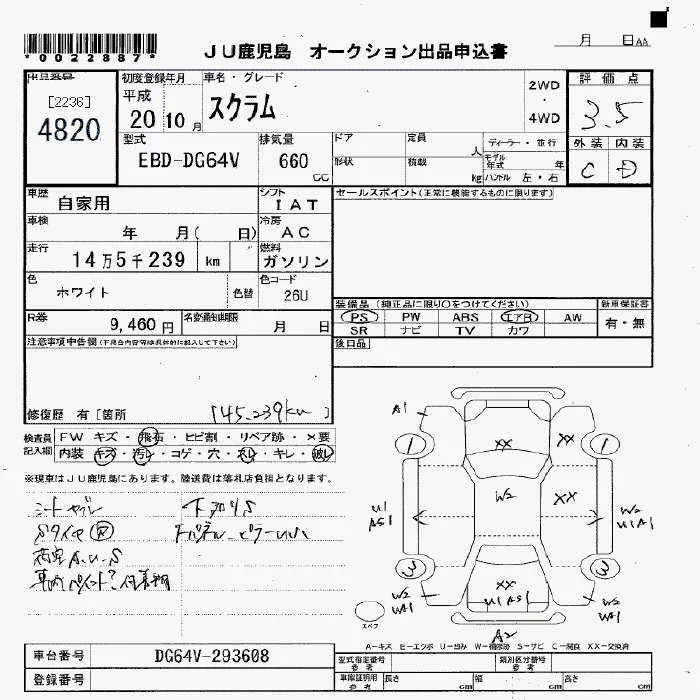 *0022887*
JU鹿児島 オークション出品申込書
月 日AA
出品番号
[2236]
4820
初度登録年月
平成
20 10 月
車名・グレード
スクラム
2WD
4WD
評価点
3.5
外装 内装
C D
型式
EBD-DG64V
排気量
660
CC
ドア
形状
定員
人
積載
kg
ディーラー・並行
モデル年式 年
ハンドル 左・右
車歴
自家用
シフト
IAT
車検
年 月( 日)
冷房
AC
走行
14万5千239 km
燃料
ガソリン
色
ホワイト
色替
色コード
26U
R券
9,460 円
名変通知期限
月 日
セールスポイント(正常に機能するものに限ります)
装備品 (純正品に限り○をつけてください)
PS PW ABS エアB AW
SR ナビ TV カワ
新車保証書
有・無
後日品
注意事項申告欄(不具合内容等は具体的に記入して下さい)
修復歴 有[箇所
145,239km
検査員
記入欄
FW キズ・飛石・ヒビ割・リペア跡・X要
内装 キズ・汚レ・コゲ・穴・スレ・キレ・破レ
※現車はJU鹿児島にあります。陸送費は落札店負担となります。
シートヤブレ
下回りS
Sタイヤ
A1
1
1
XX
X
W2
XX
U1
AS1
W2
U1A1
3
3
W2
XX
U1AS1
W2
A2
スペア
A-キズ E-エクボ U-凹み W-補修跡 S-サビ C-腐食 XX-交換済
車台番号
DG64V-293608
登録番号
型式指定番号
参考
類別区分番号
参考
車庫証明用
参考
長さ cm
幅 cm
高さ cm